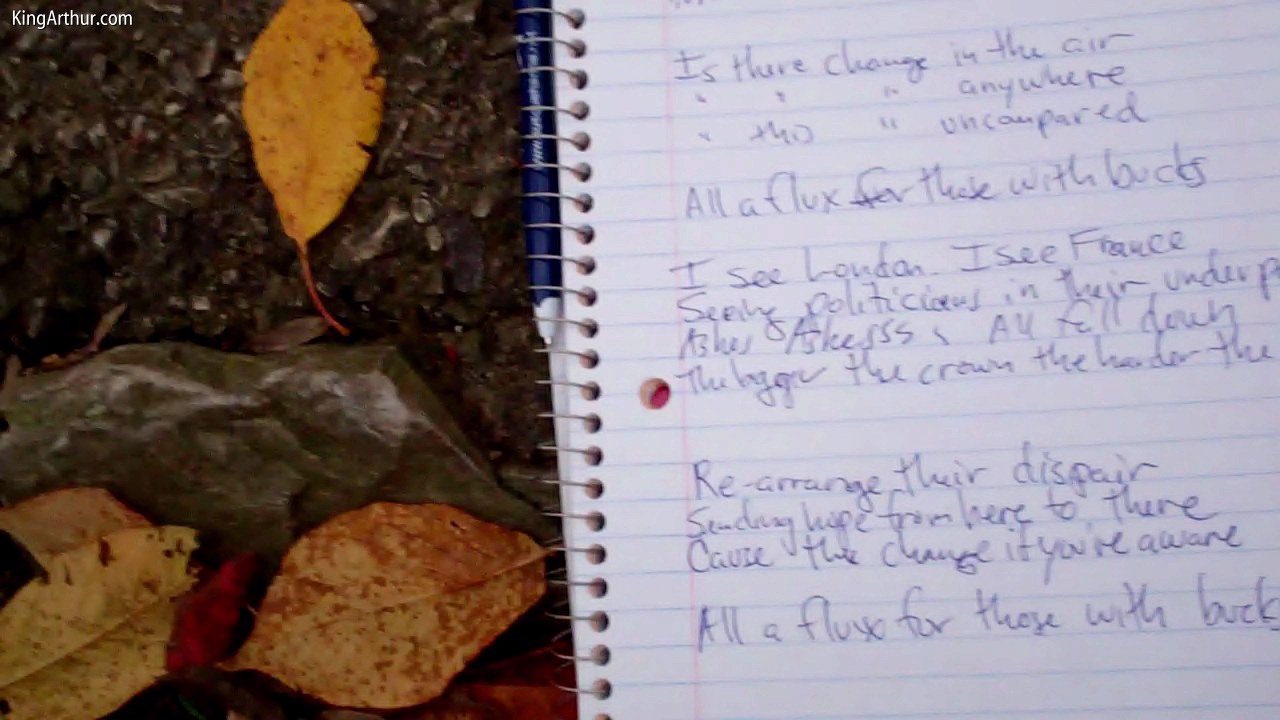 KingArthur.com
Is there change in the air
" " " anywhere
" this " uncompared
All a flux for those with bucks
I see London. I see France
Seeing politicians in their underp
Ashes Ashesss, All fall down
The bigger the crown the harder the
Re-arrange their dispair
Sending hope from here to there
Cause the change if you're aware
All a flux for those with buck